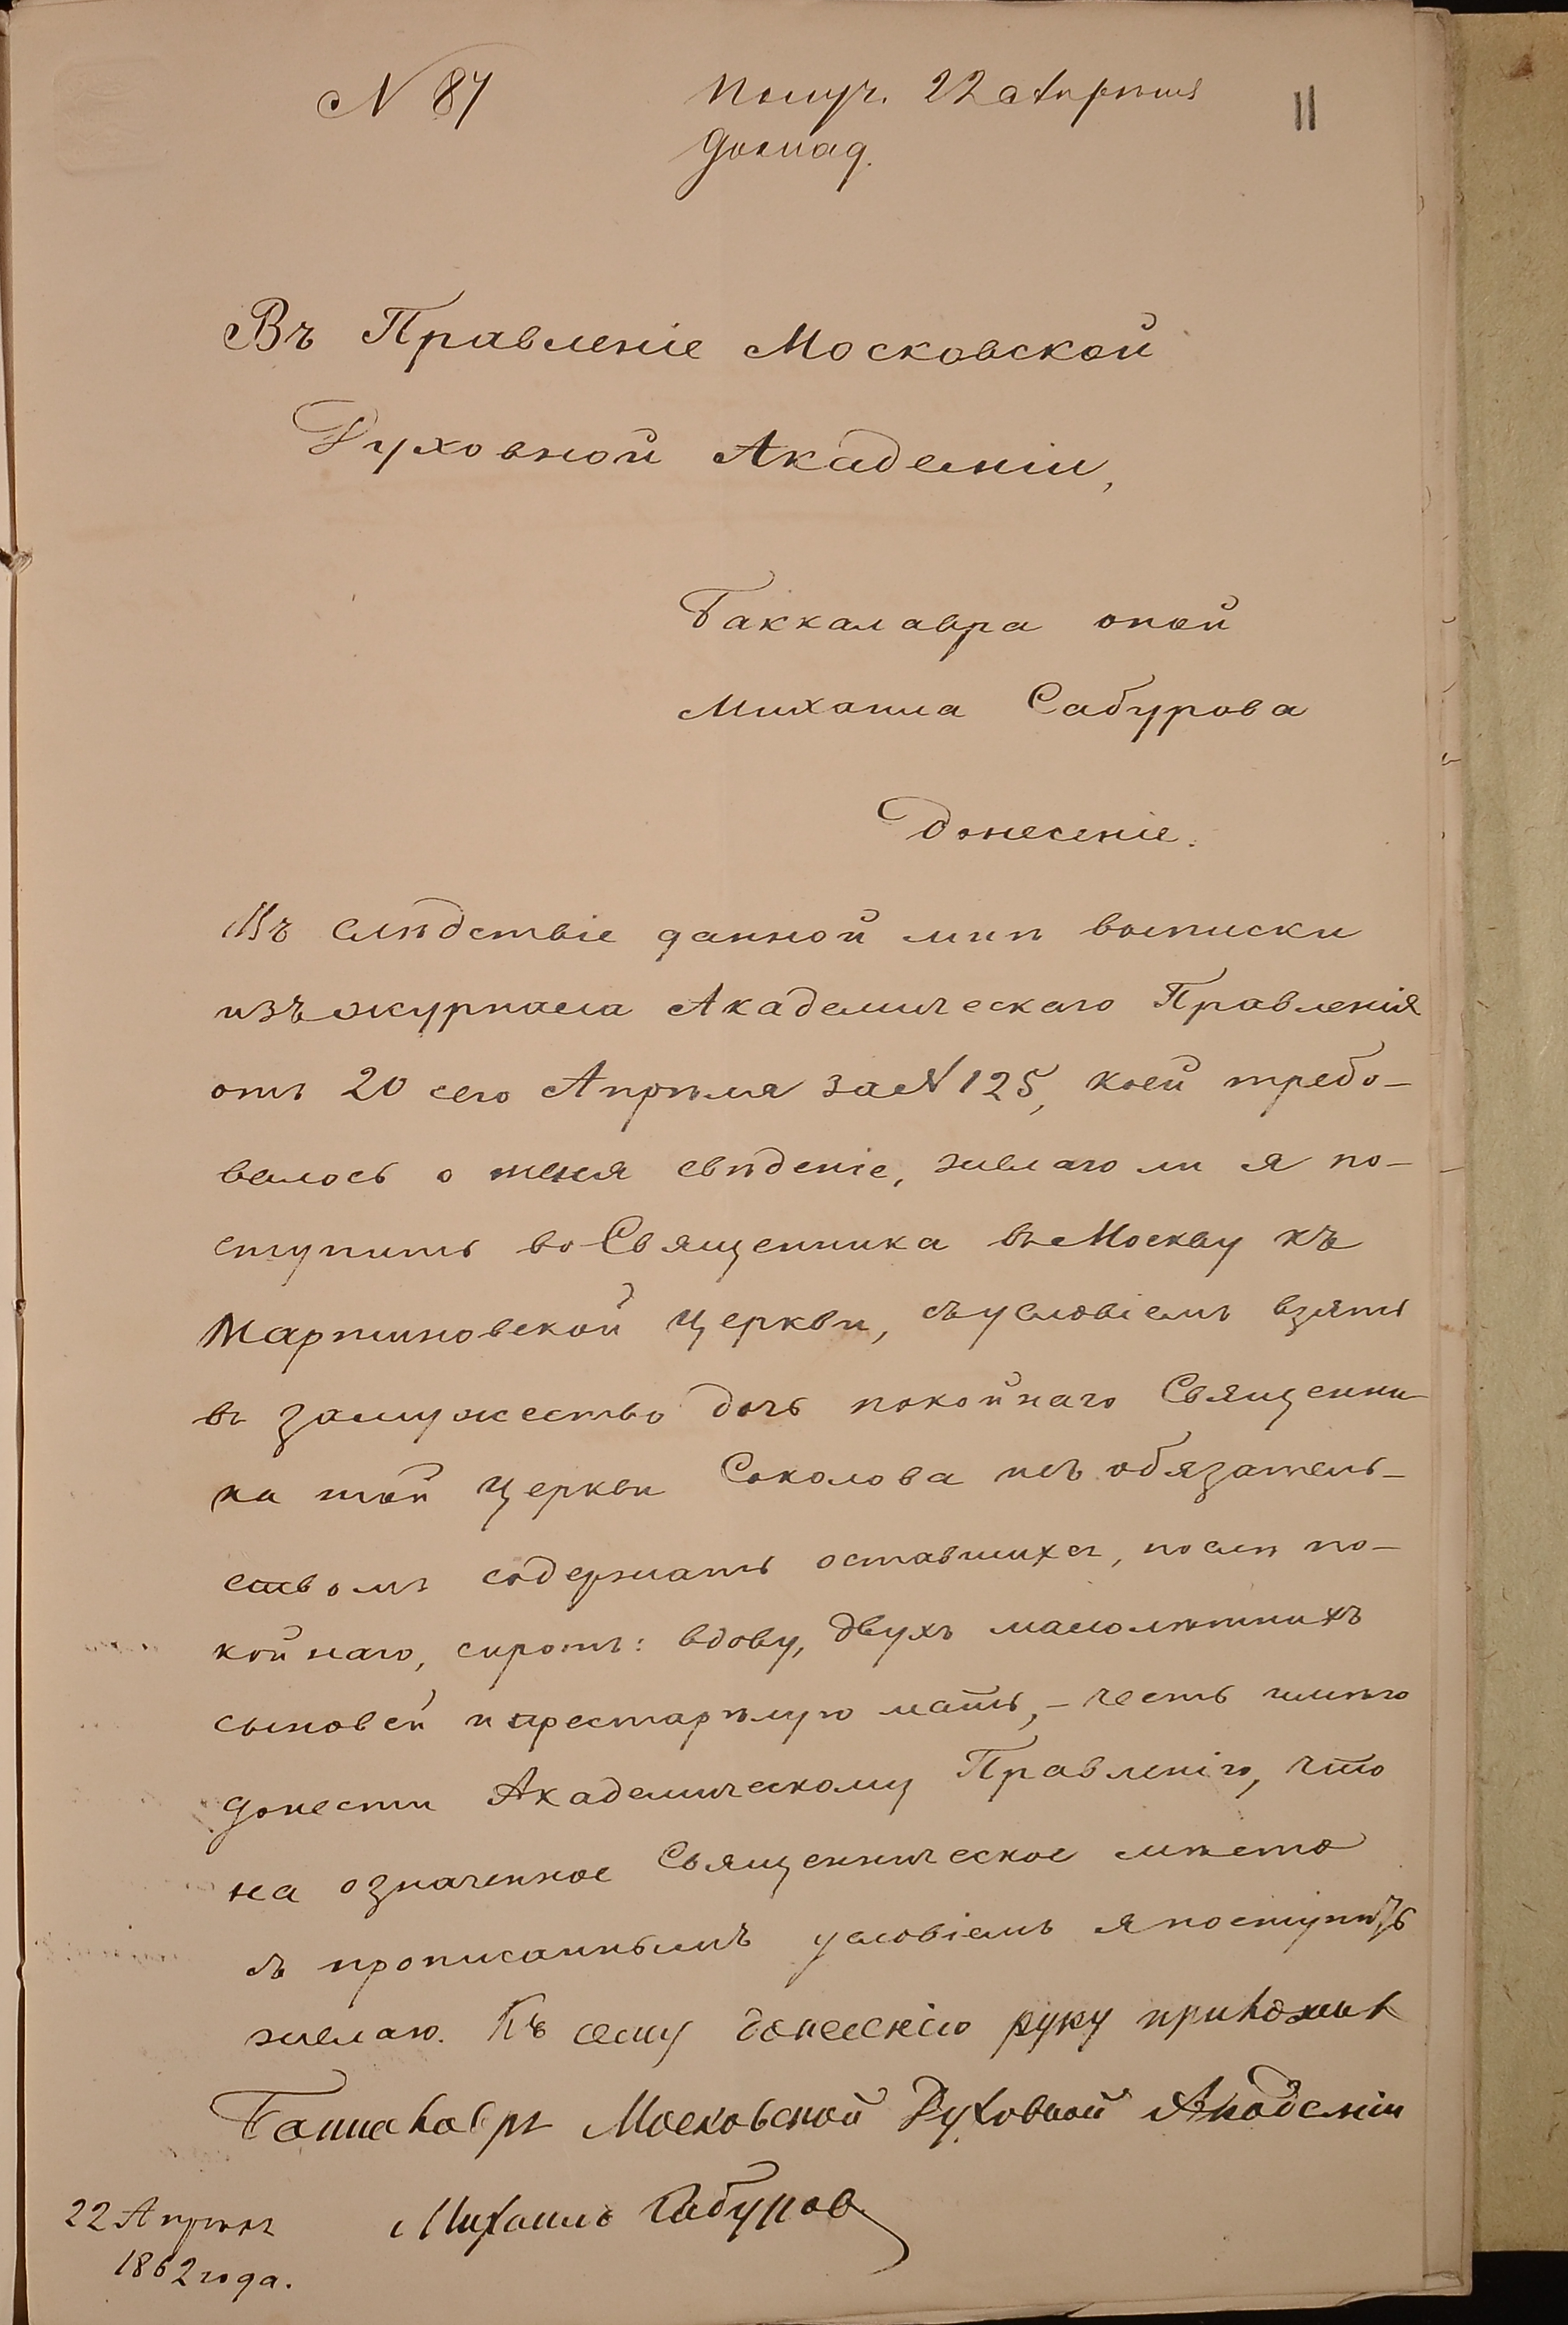 N 87 Получ. 22 Апрѣля 11
Доклад.
Въ Правленіе Московской
Духовной Академіи,
Баккалавра оной
Михаила Сабурова
Донесеніе.
Въ слѣдствіе данной мнѣ выписки
изъ журнала Академическаго Правленія
отъ 20 сего Апрѣля за N 125, коей требо-
валось о меня свѣденіе, желаю ли я по-
ступить во Священника въ Москву къ
Мартиновской церкви, съ условіемъ взять
въ замужество дочь покойнаго Священни-
ка той церкви Соколова и съ обязатель-
ствомъ содержать оставшихся, послѣ по-
койнаго, сиротъ: вдову, двухъ малолѣтнихъ
сыновей и престарѣлую мать, - честь имѣю
донести Академическому Правленію, что
на означенное Священническое мѣсто
съ прописаннымъ условіемъ я поступить
желаю. Къ сему донесенію руку приложилъ
Баккалавръ Московской Духовной Академіи
Михаилъ Сабуровъ
22 Апрѣля
1862 года.